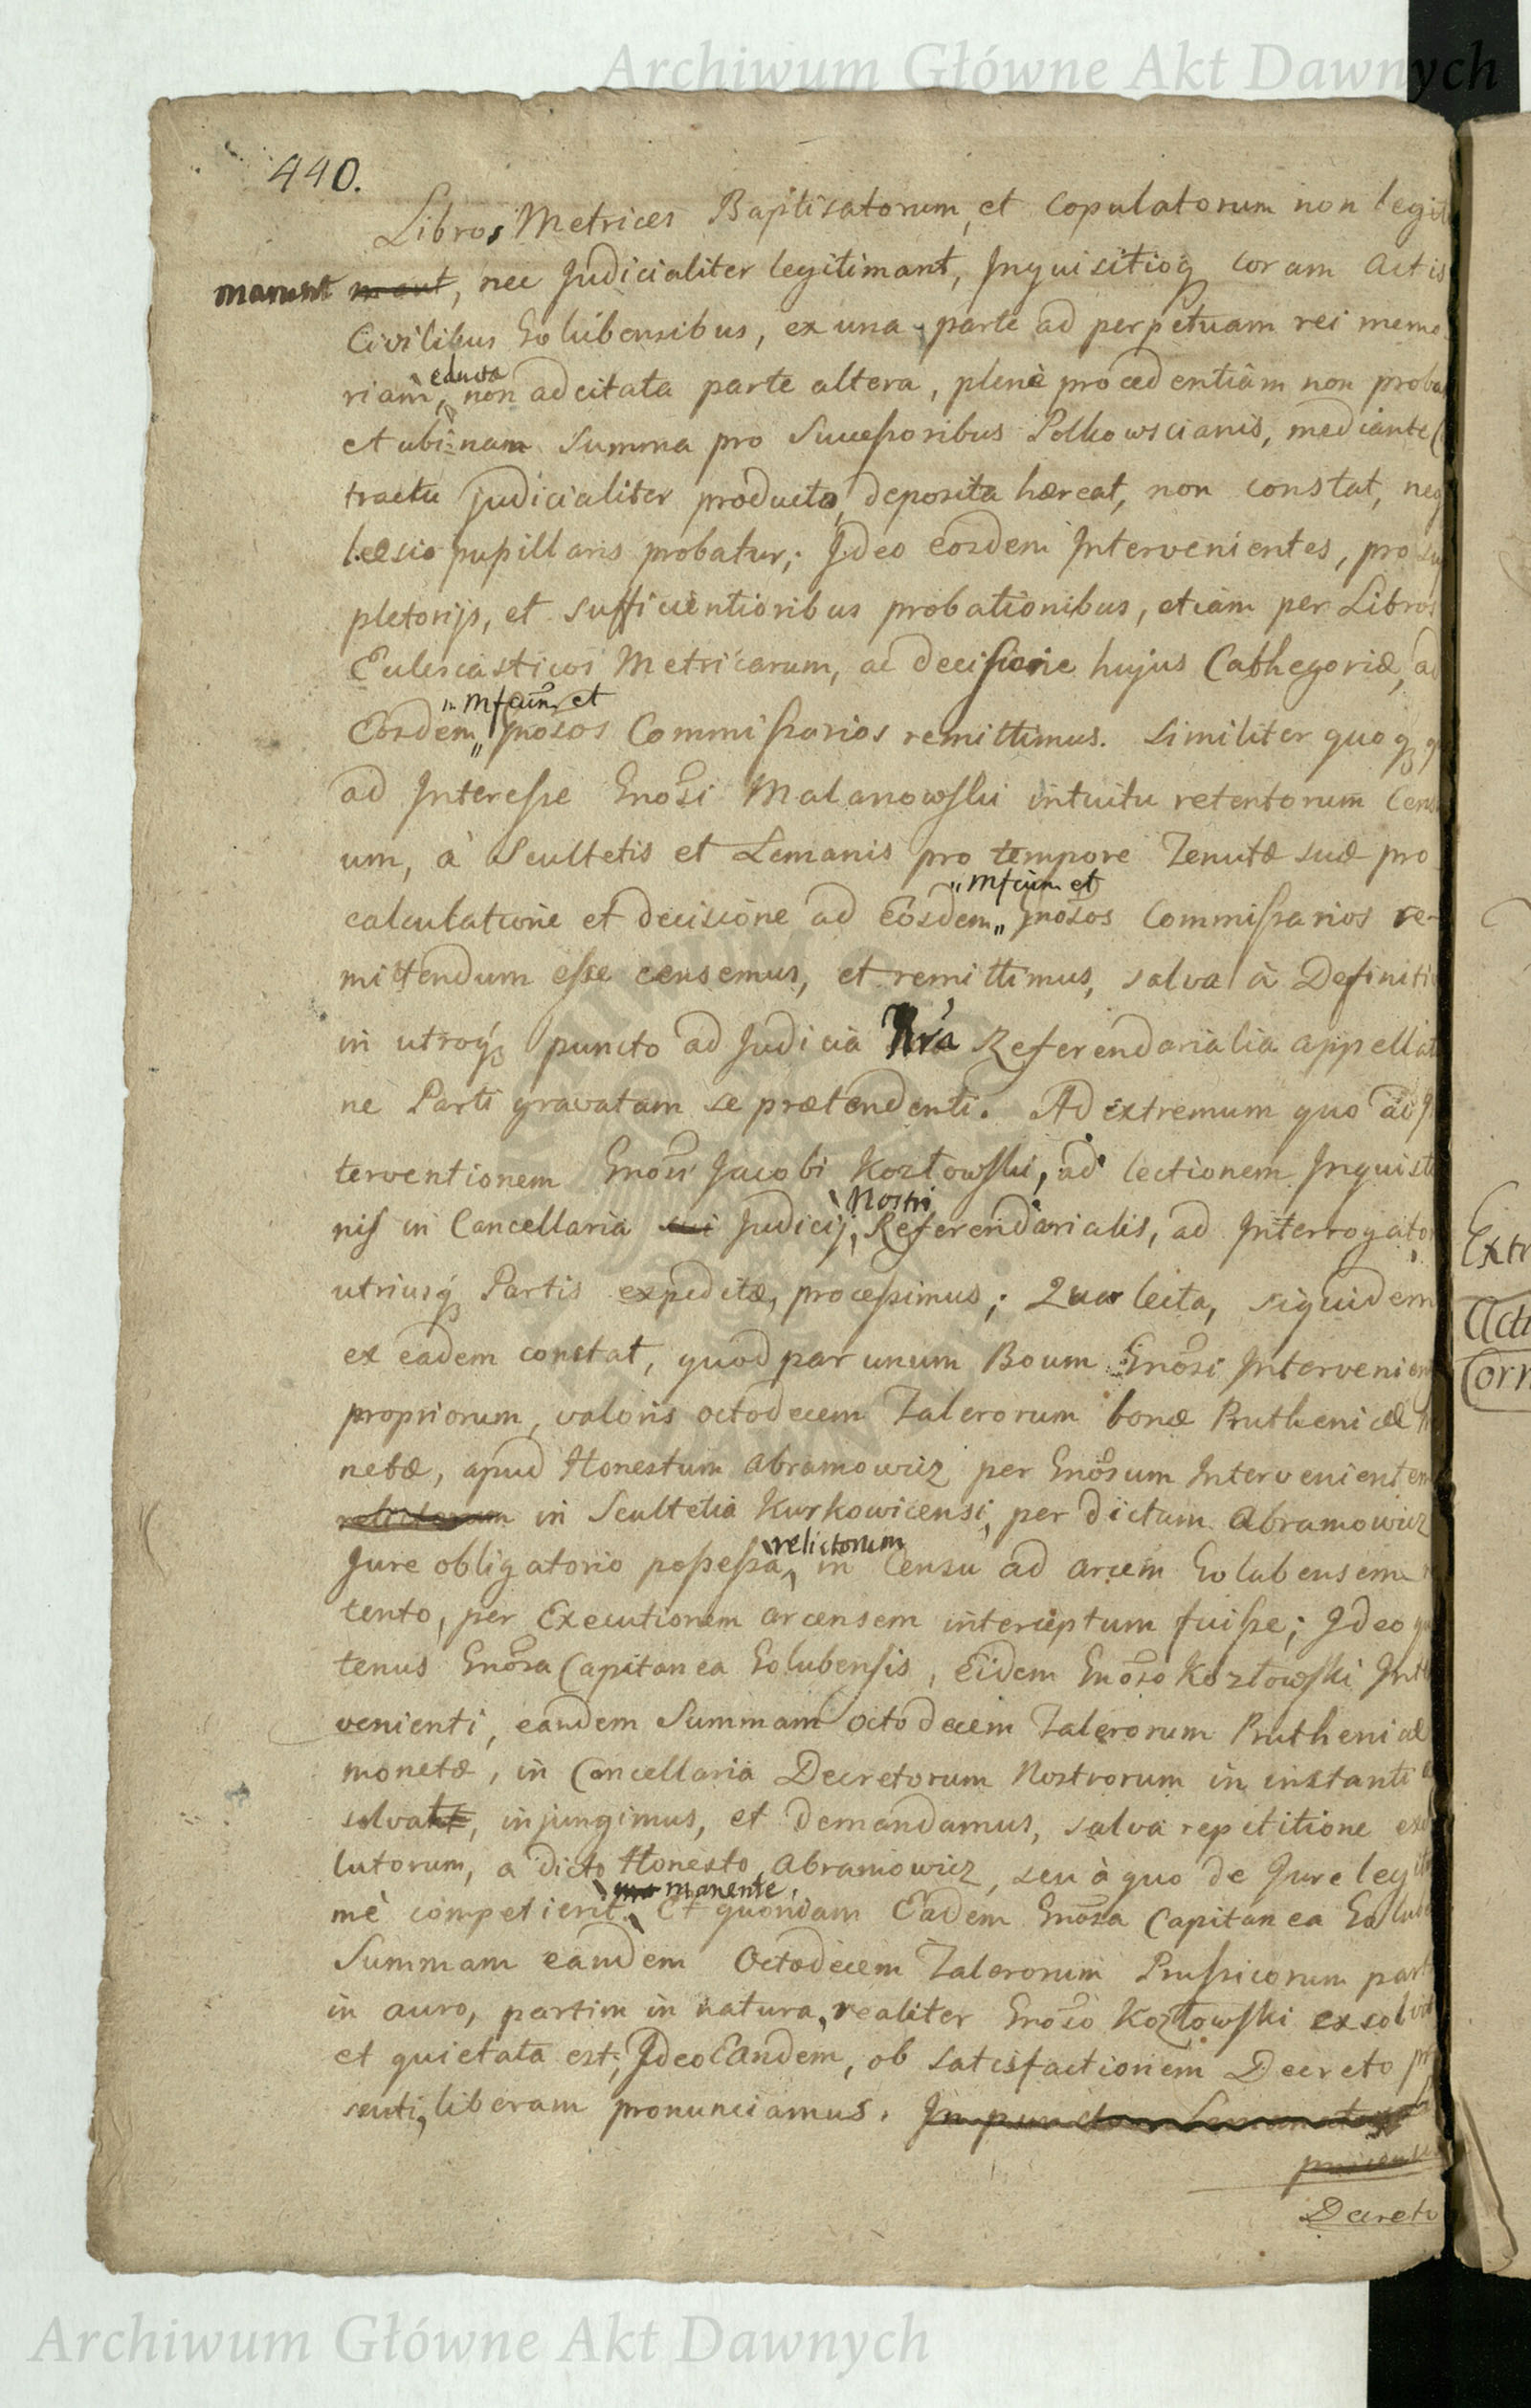 Archiwum Główne Akt Dawnych
440.
Libros Metrices Baptisatorum, et Copulatorum non legit
marunt mant, nec Judicialiter legitimant, Inquisitioq coram Actis
Civilibus Golubensibus, ex una parte ad perpetuam rei memo
educta
riam, non adcitata parte altera, plenè procedentiam non proba
et ubi-nam Summa pro Successoribus Polkowscianis, mediante
tractu judicialiter producto, deposita hæreat, non constat, neq
læsio pupillaris probatur; Ideo eosdem Intervenientes, pro su
pletorijs, et sufficientioribus probationibus, etiam per Libros
Ecclesiasticos Metricarum, ac decisione hujus Cathegoriæ, ad
"Mfcum et
Eosdem" Gnosos Commissarios remittimus. Similiter quoq
ad Interesse Gnosi Malanowski intuitu retentorum Cens
um, à Scultetis et Lemanis pro tempore Tenutæ suæ pro
"Mfcum et
calculatione et decisione ad Eosdem" Gnosos Commissarios re-
mittendum esse censemus, et remittimus, salva à Definiti
in utroq puncto ad Judicia Nra Referendarialia appellat
ne Parti gravatam se prætendenti. Ad extremum quo ad
terventionem Gnosi Jacobi Kozłowski, ad lectionem Inquisit
Nostri
nis in Cancellaria sui Judicij, Referendarialis, ad Interrogator
utriusq Partis expeditæ, processimus; Qua lecta, siquidem
ex eadem constat, quod par unum Boum Gnosi Intervenien
propriorum, valoris octodecem Talerorum bonæ Pruthenicæ
netæ, apud Honestum Abramowicz per Gnosum Intervenientem
relictorum in Scultetia Kurkowicensi, per dictum Abramowicz
relictorum
Jure obligatorio possessa, in Censu ad arcem Golubensem
tento, per Executionem arcensem interceptum fuisse; Ideo
tenus Gnosa Capitanea Golubensis, Eidem Gnoso Kozłowski Int
venienti, eandem Summam octodecem Talerorum Pruthenicæ
monetæ, in Cancellaria Decretorum Nostrorum in instanti
solvat, injungimus, et demandamus, salva repetitione exo
lutorum, a dicto Honesto Abramowicz, seu à quo de Jure legit
manente
mè competierit. Et quoniam Eadem Gnosa Capitanea Golub
Summam eandem Octodecem Talerorum Prussicorum part
in auro, partim in natura, realiter Gnoso Kozłowski exsolvit
et quietata est; Ideo Eandem, ob satisfactionem Decreto præ
senti, liberam pronunciamus. In puncto
Decreto
Extr
Actu
Corr
Archiwum Główne Akt Dawnych